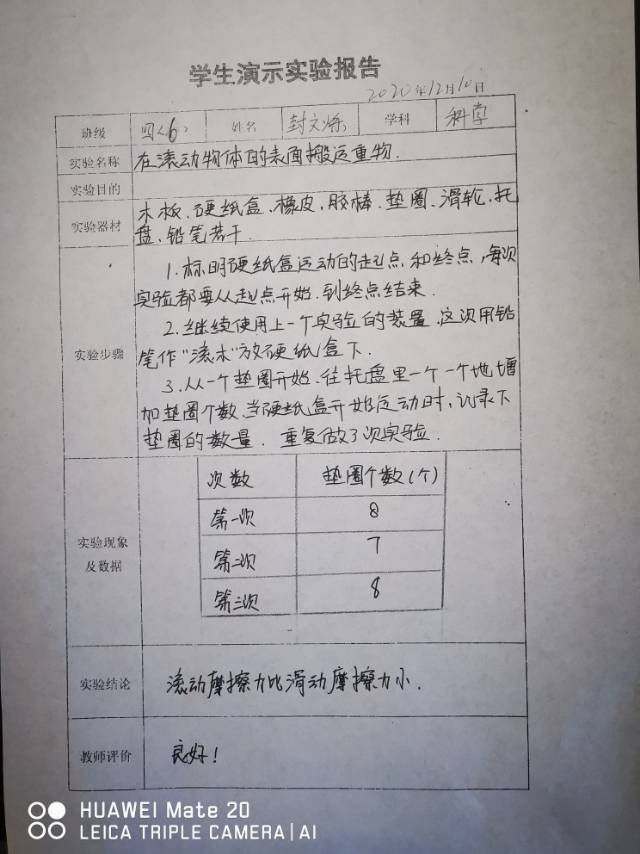 学生演示实验报告
2020年12月10日
班级 四(6) 姓名 封文烁 学科 科学
实验名称 在滚动物体的表面搬运重物.
实验目的
实验器材 木板、硬纸盒、橡皮、胶棒、垫圈、滑轮、托
盘、铅笔若干.
实验步骤
1.标明硬纸盒运动的起点和终点,每次
实验都要从起点开始.到终点结束.
2.继续使用上一个实验的装置.这次用铅
笔作"滚木"放硬纸盒下.
3.从一个垫圈开始.往托盘里一个一个地增
加垫圈个数.当硬纸盒开始运动时,记录下
垫圈的数量. 重复做3次实验.
实验现象
及数据
次数 垫圈个数(个)
第一次 8
第二次 7
第三次 8
实验结论 滚动摩擦力比滑动摩擦力小.
教师评价 良好!
HUAWEI Mate 20
LEICA TRIPLE CAMERA | AI